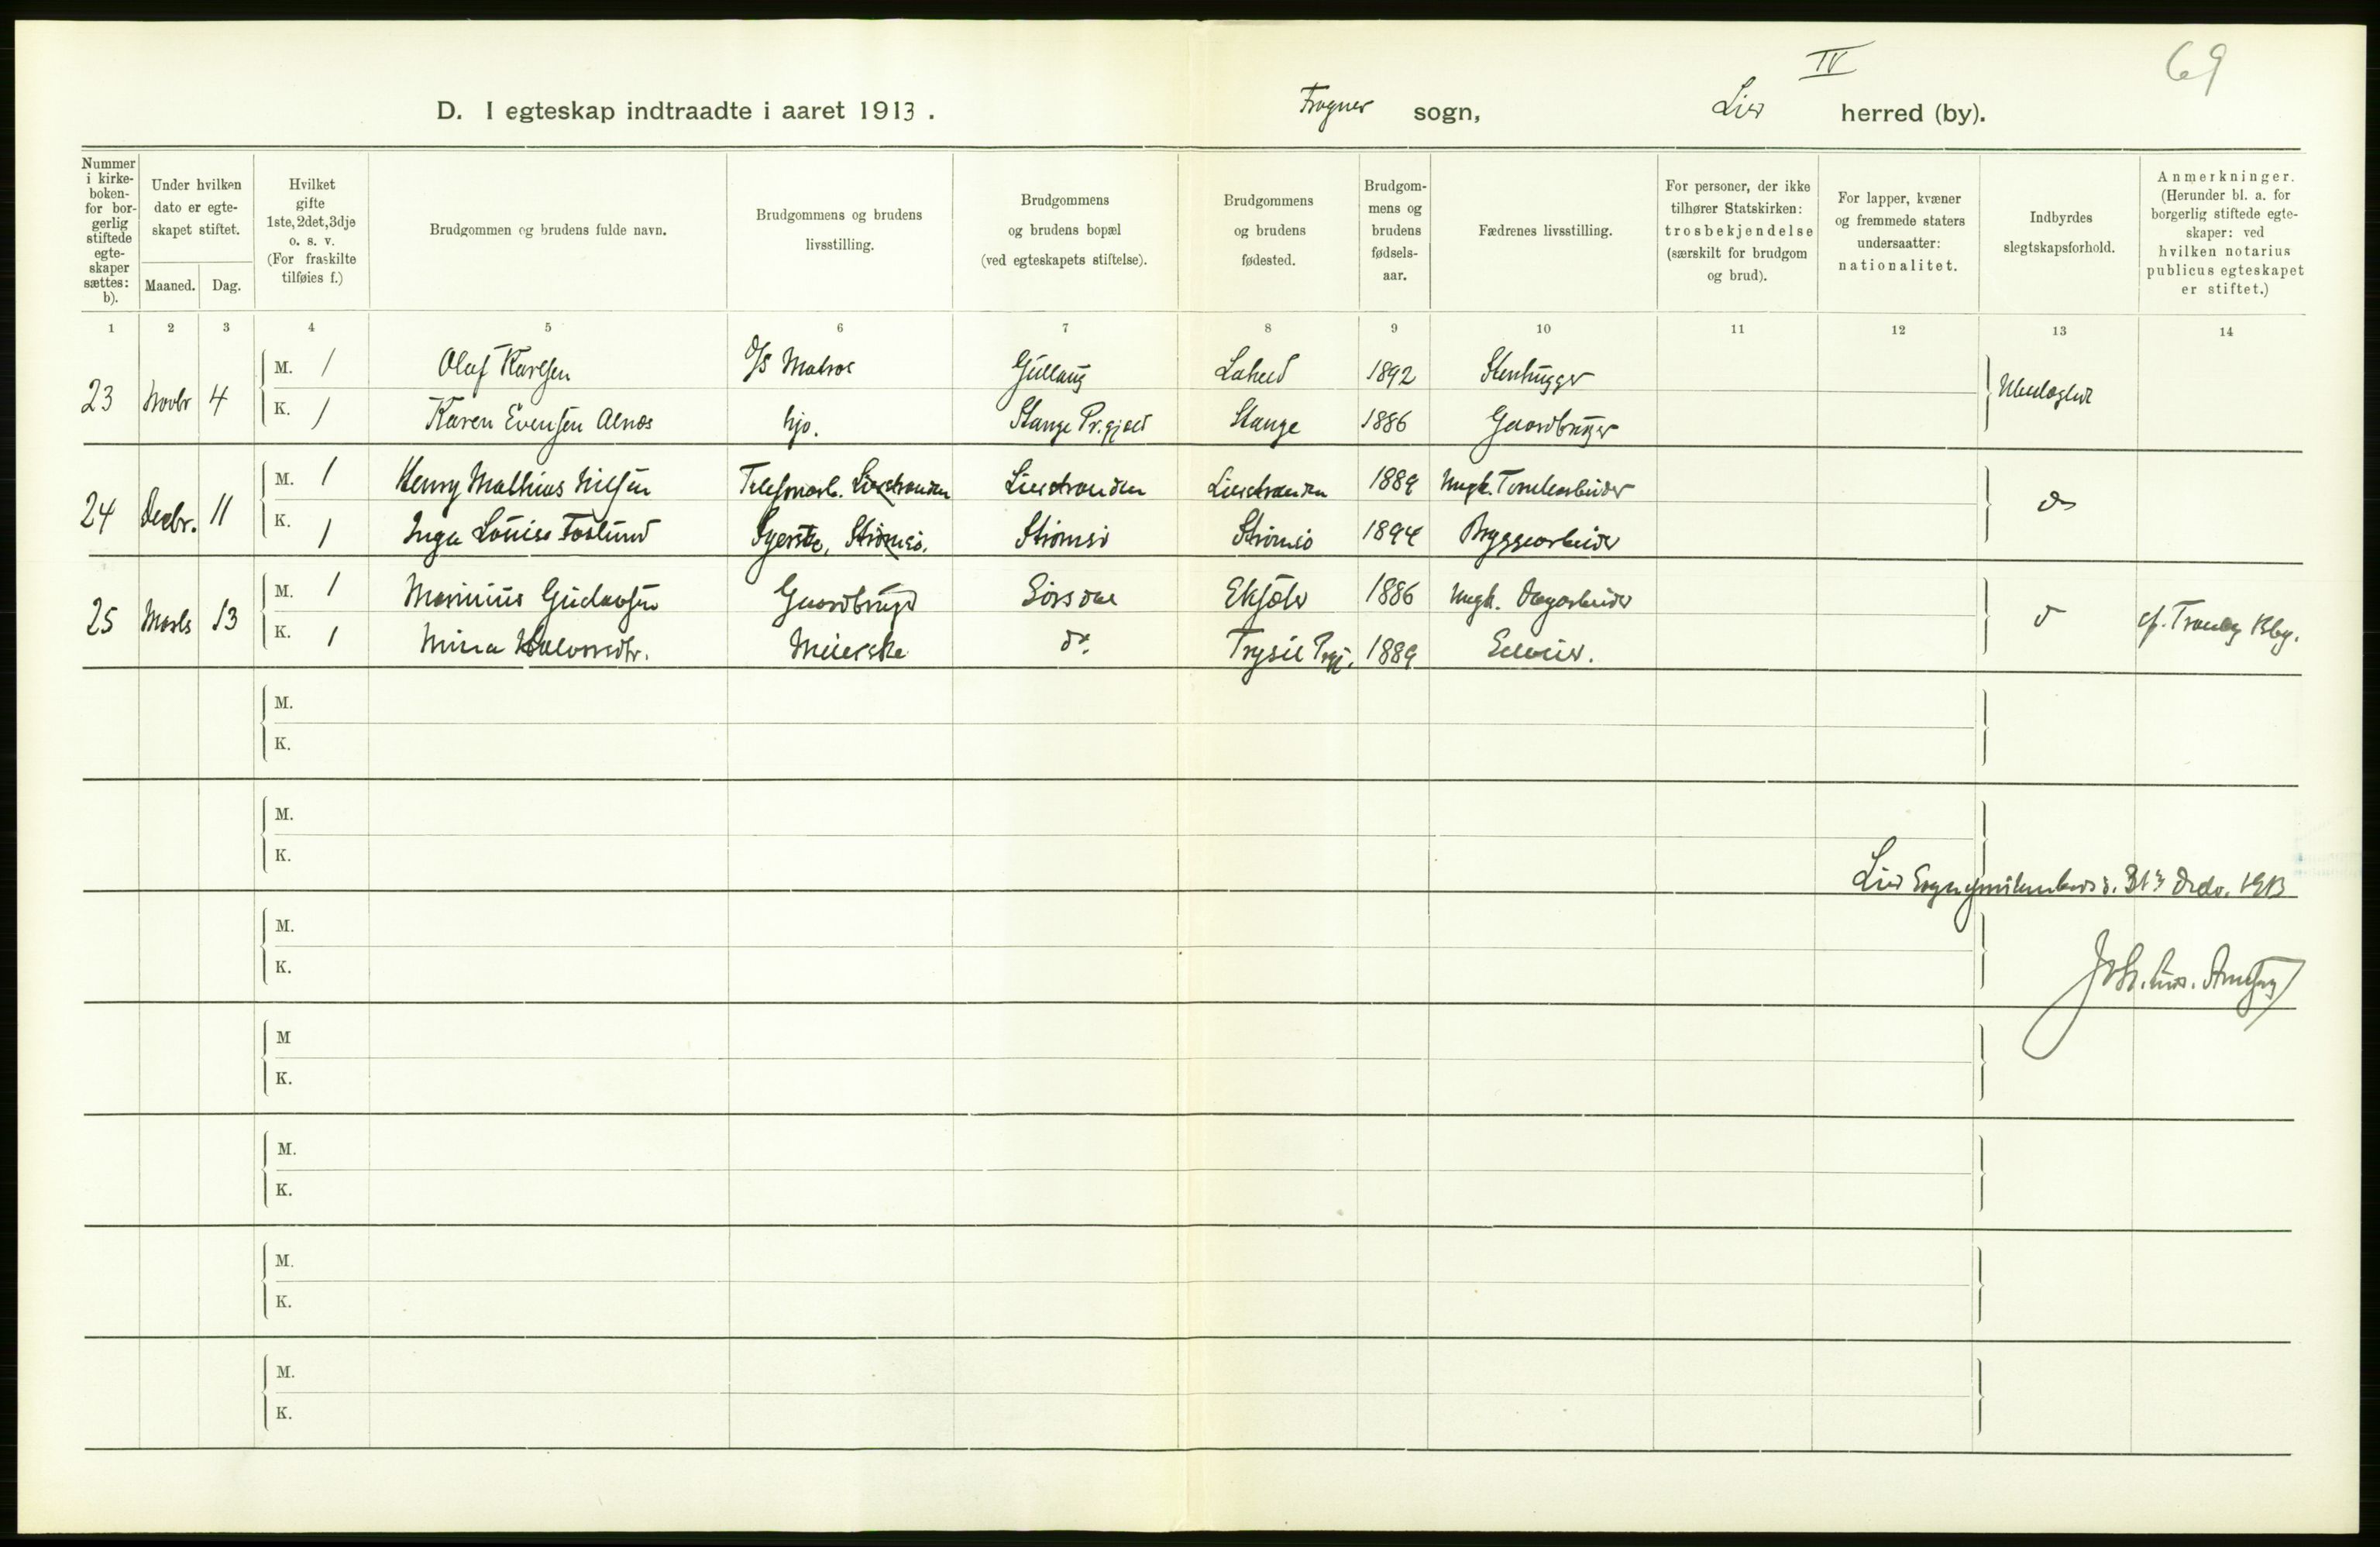 IV
69
D. I egteskap indtraadte i aaret 1913. Frogner sogn, Lier herred (by).
Nummer i kirkeboken- for borgerlig stiftede egteskaper sættes: b).
Under hvilken dato er egteskapet stiftet.
Maaned. Dag.
Hvilket gifte 1ste, 2det, 3dje o. s. v. (For fraskilte tilføies f.)
Brudgommen og brudens fulde navn.
Brudgommens og brudens livsstilling.
Brudgommens og brudens bopæl (ved egteskapets stiftelse).
Brudgommens og brudens fødested.
Brudgommens og brudens fødselsaar.
Fædrenes livsstilling.
For personer, der ikke tilhører Statskirken: trosbekjendelse (særskilt for brudgom og brud).
For lapper, kvæner og fremmede staters undersaatter: nationalitet.
Indbyrdes slegtskapsforhold.
Anmerkninger. (Herunder bl. a. for borgerlig stiftede egteskaper: ved hvilken notarius publicus egteskapet er stiftet.)
1 2 3 4 5 6 7 8 9 10 11 12 13 14
M. 1 Olaf Karlsen Matros Gullaug 1892 Stenhugger
23 Novbr 4 Ubeslegtet
K. 1 Karen Evensen Alnæs hjo. Stange Pr.gjæld Stange 1886 Gaardbruger
M. 1 Henry Mathias Nilsen Telefonarb. Lierstranden Lierstranden Lierstranden 1889 Tomtearbeider
24 Decbr. 11 do
K. 1 Inga Louise Foslund Syerske, Strømsø. Strømsø Strømsø 1894 Bryggearbeider
M. 1 Marinius Gustavsen Gaardbruger Sørsdal 1886 Dagarbeider
25 Marts 13 do cf. Tranby Kbg.
K. 1 Mina Halvorsdtr. Meierske do. Trysil Prgj. 1889 Seleier.
M.
K.
M.
K.
Lier 31te Decbr. 1913
M.
K.
M
K.
M.
K.
M.
K.
M.
K.